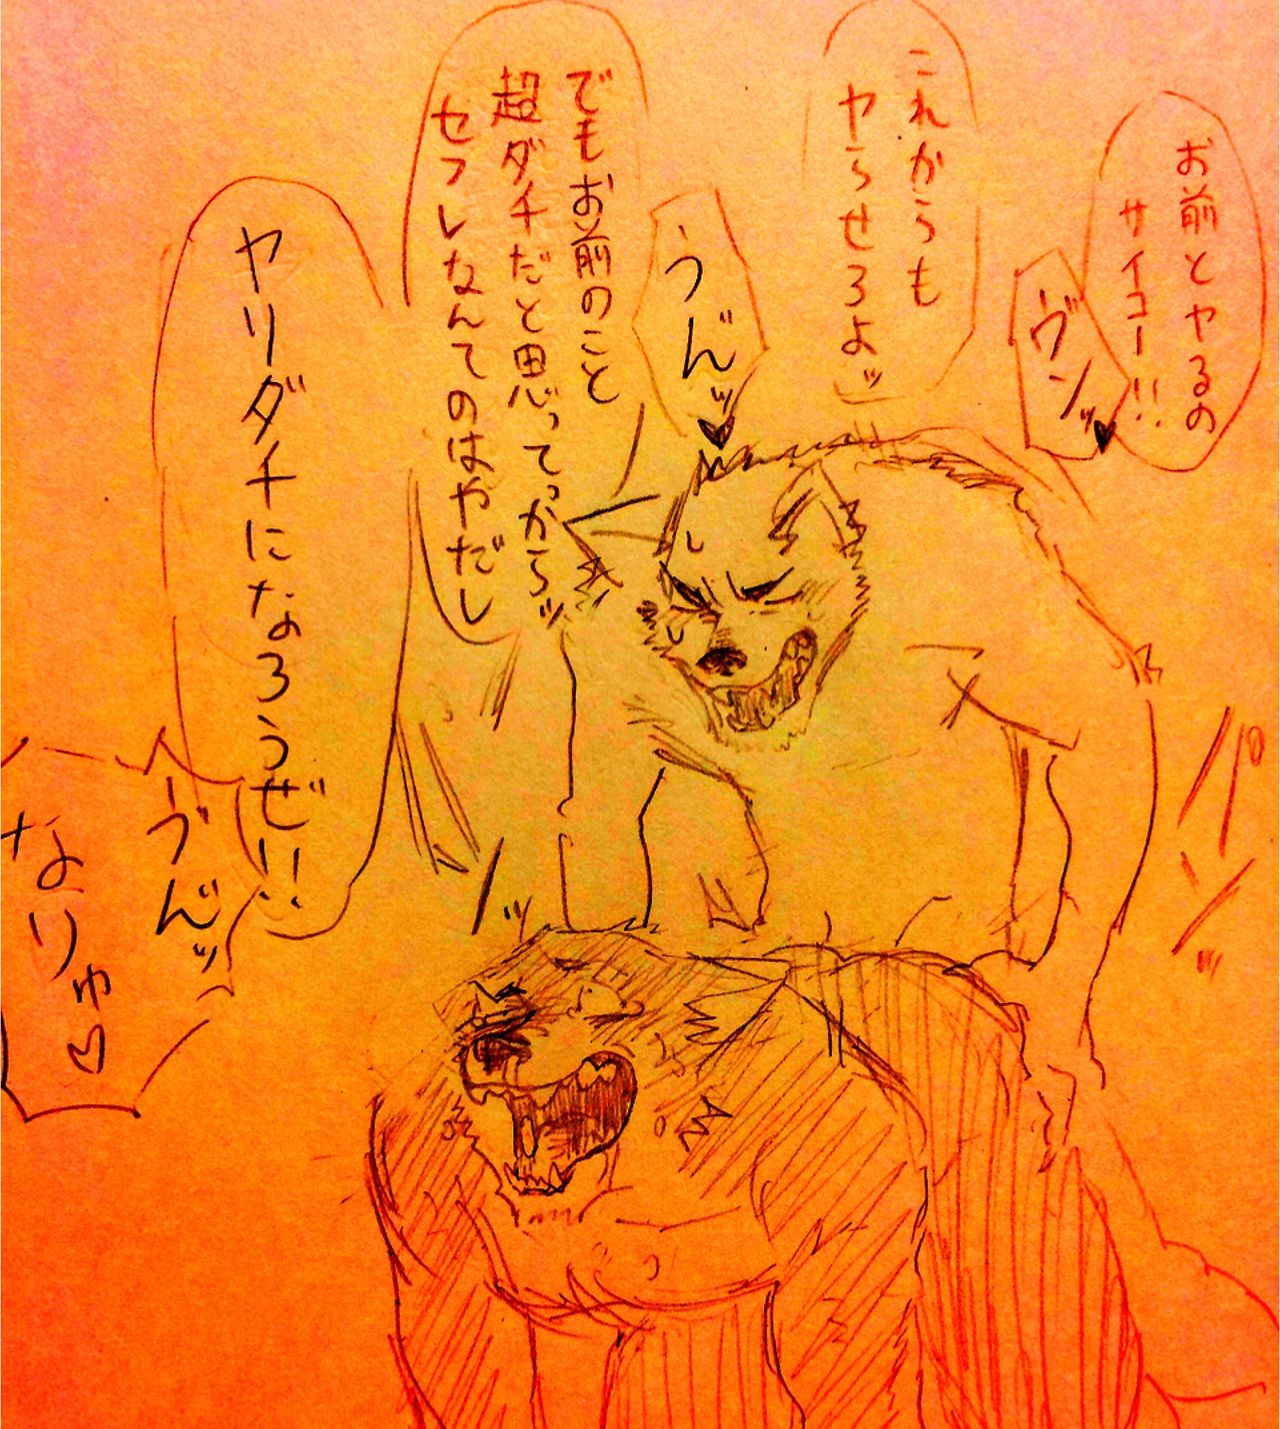 お前とヤるの
サイコー!!
ヴンッ♥
これからも
ヤらせろよッ
うんッ♥
でもお前のこと
超ダチだと思ってっからッ
セフレなんてのはやだし
ヤリダチになろうぜ!!
パンッ
ゔんッ
なりゅ♡